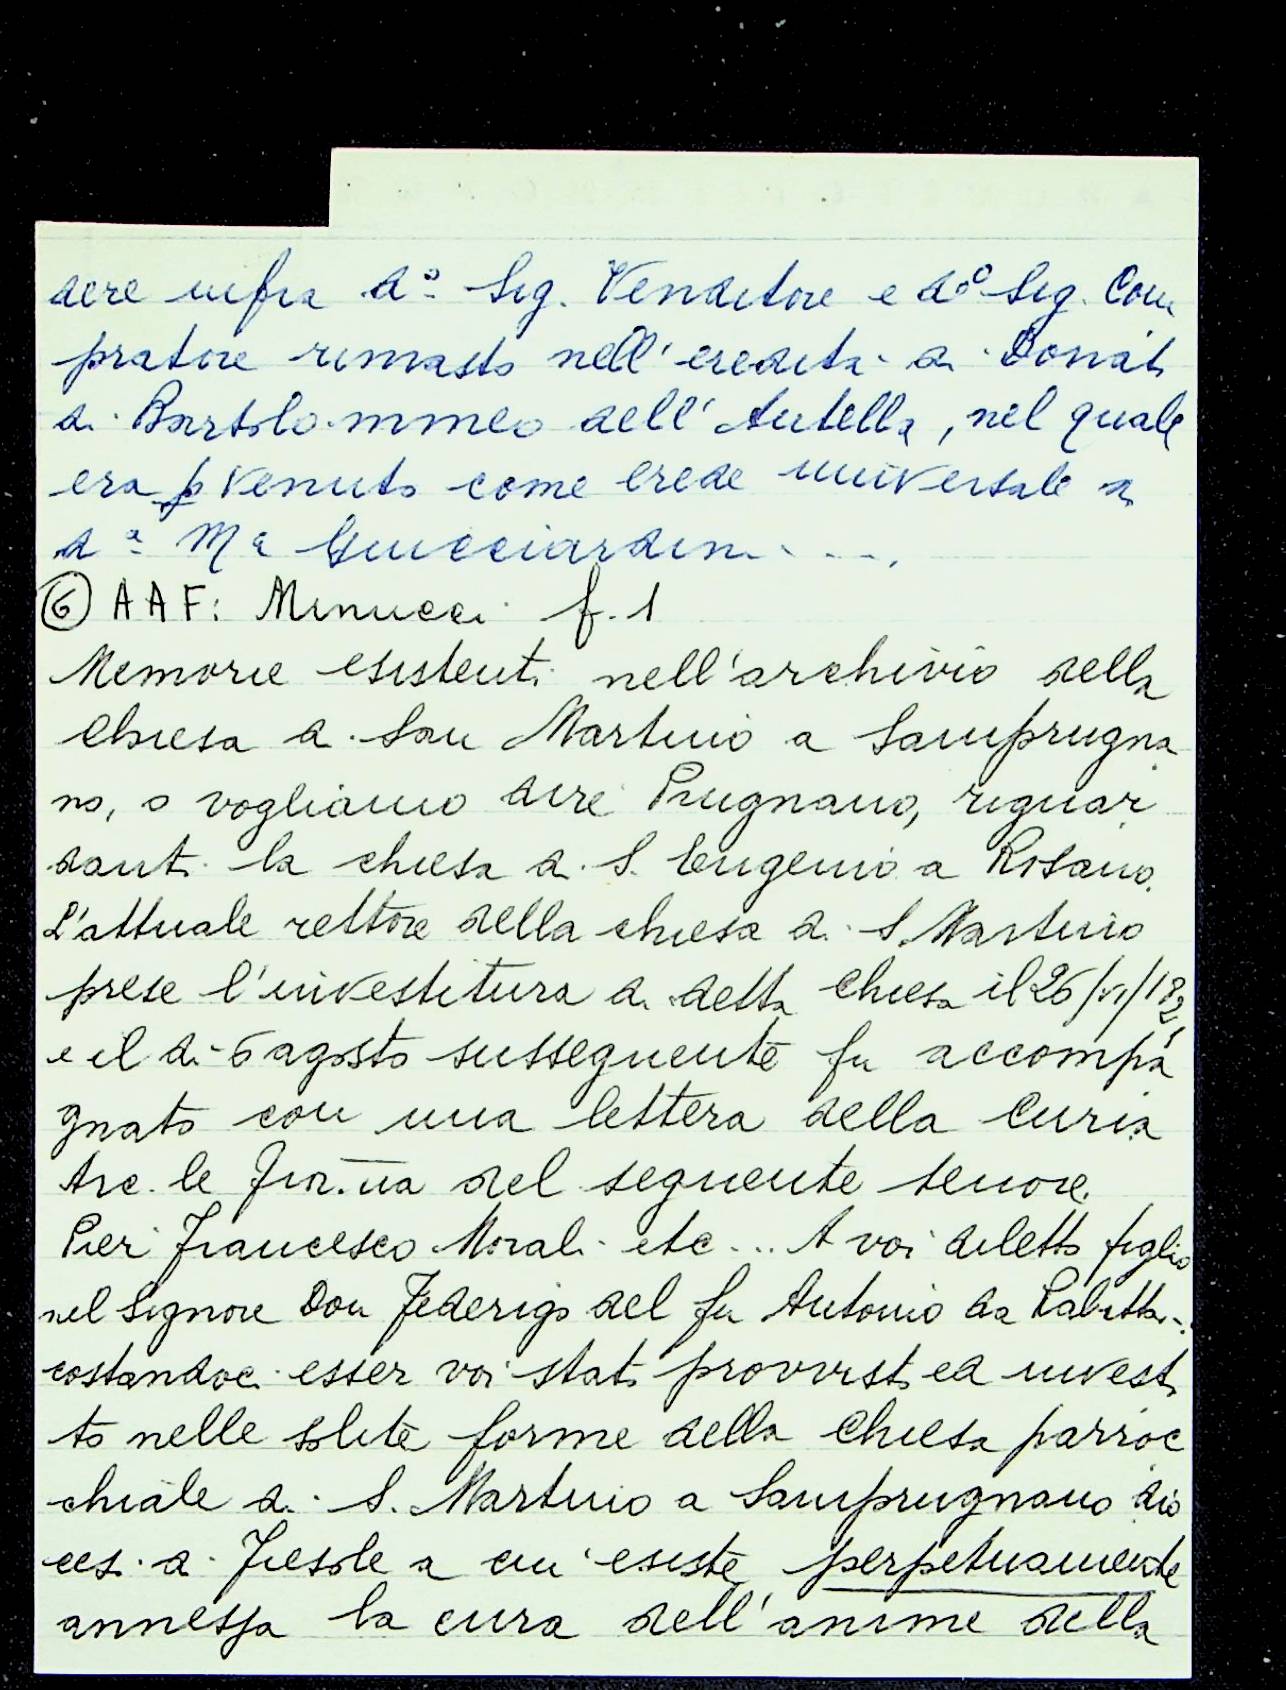 dere infra d.º Sig. Venditore e d.º Sig. Com
pratore rimasto nell'eredità di Donato
di Bartolommeo dell'Antella, nel quale
era pvenuto come erede universale di
d.ª Mª Guicciardini ....
⑥ AAF: Minucci f. 1
Memorie esistenti nell'archivio della
chiesa di San Martino a Samprugna
no, o vogliamo dire Prugnano, riguar
danti la chiesa di S. Eugenio a Rosano.
L'attuale rettore della chiesa di S. Martino
prese l'investitura di detta chiesa il 26/VI/
e il dì 6 agosto susseguente fu accompa
gnato con una lettera della Curia
Arc.le Fior.na del seguente tenore.
Pier Francesco Morali etc... A voi diletto figlio
nel Signore Don Federigo del fu Antonio da
costandoci esser voi stato provvisto ed investi
to nelle solite forme della Chiesa parroc
chiale di S. Martino a Samprugnano dio
ces. di Fiesole a cui esiste perpetuamente
annessa la cura dell'anime della